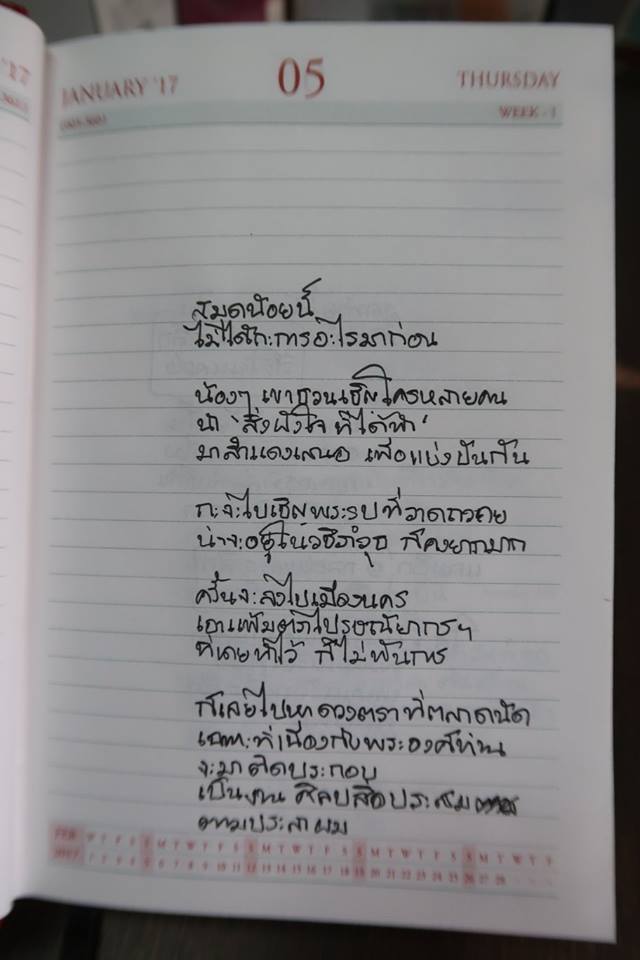 JANUARY '17 05 THURSDAY
WEEK - 1
สมุดน้อยนี้
ไม่ได้กะการอะไรมาก่อน
น้องๆ เขาชวนเชิญใครหลายคน
นำ 'สิ่งฝังใจ ที่ได้ทำ'
มาสำแดงเสนอ เพื่อแบ่งปันกัน
กะจะไปเชิญพระรูปที่วาดถวาย
น่าจะอยู่ในวชิราวุธ ก็คงยากมาก
ครั้นจะลงไปเมืองนคร
เอาแฟ้มตราไปรษณียากรฯ
ที่เคยทำไว้ ก็ไม่ทันการ
ก็เลยไปหาดวงตราที่ตลาดนัด
เฉพาะที่เนื่องกับพระองค์ท่าน
จะมาติดประกอบ
เป็นงาน ศิลปสื่อประสม
ตามประสาผม
FEB W T F S S M T W T F S S M T W T F S S M T W T F S S M T W T F
2017